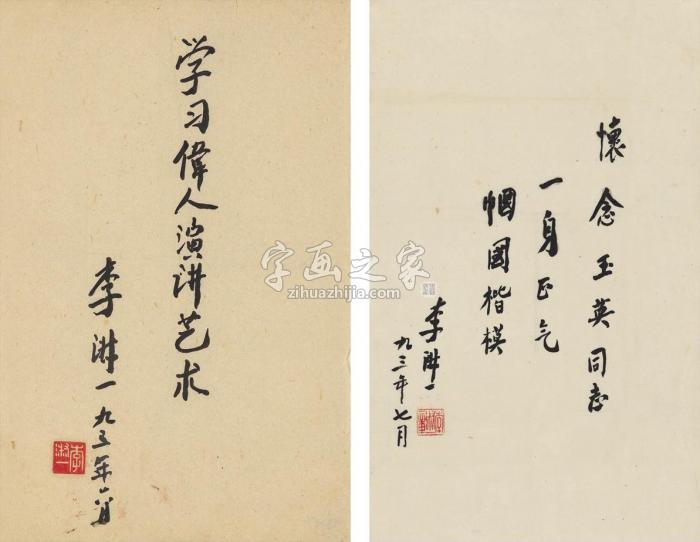 学习偉人演讲艺术
李淑一九三年六月
李淑一
懷念玉英同志
一身正气
帼國楷模
李淑一
九三年七月
字画之家
zihuazhijia.com